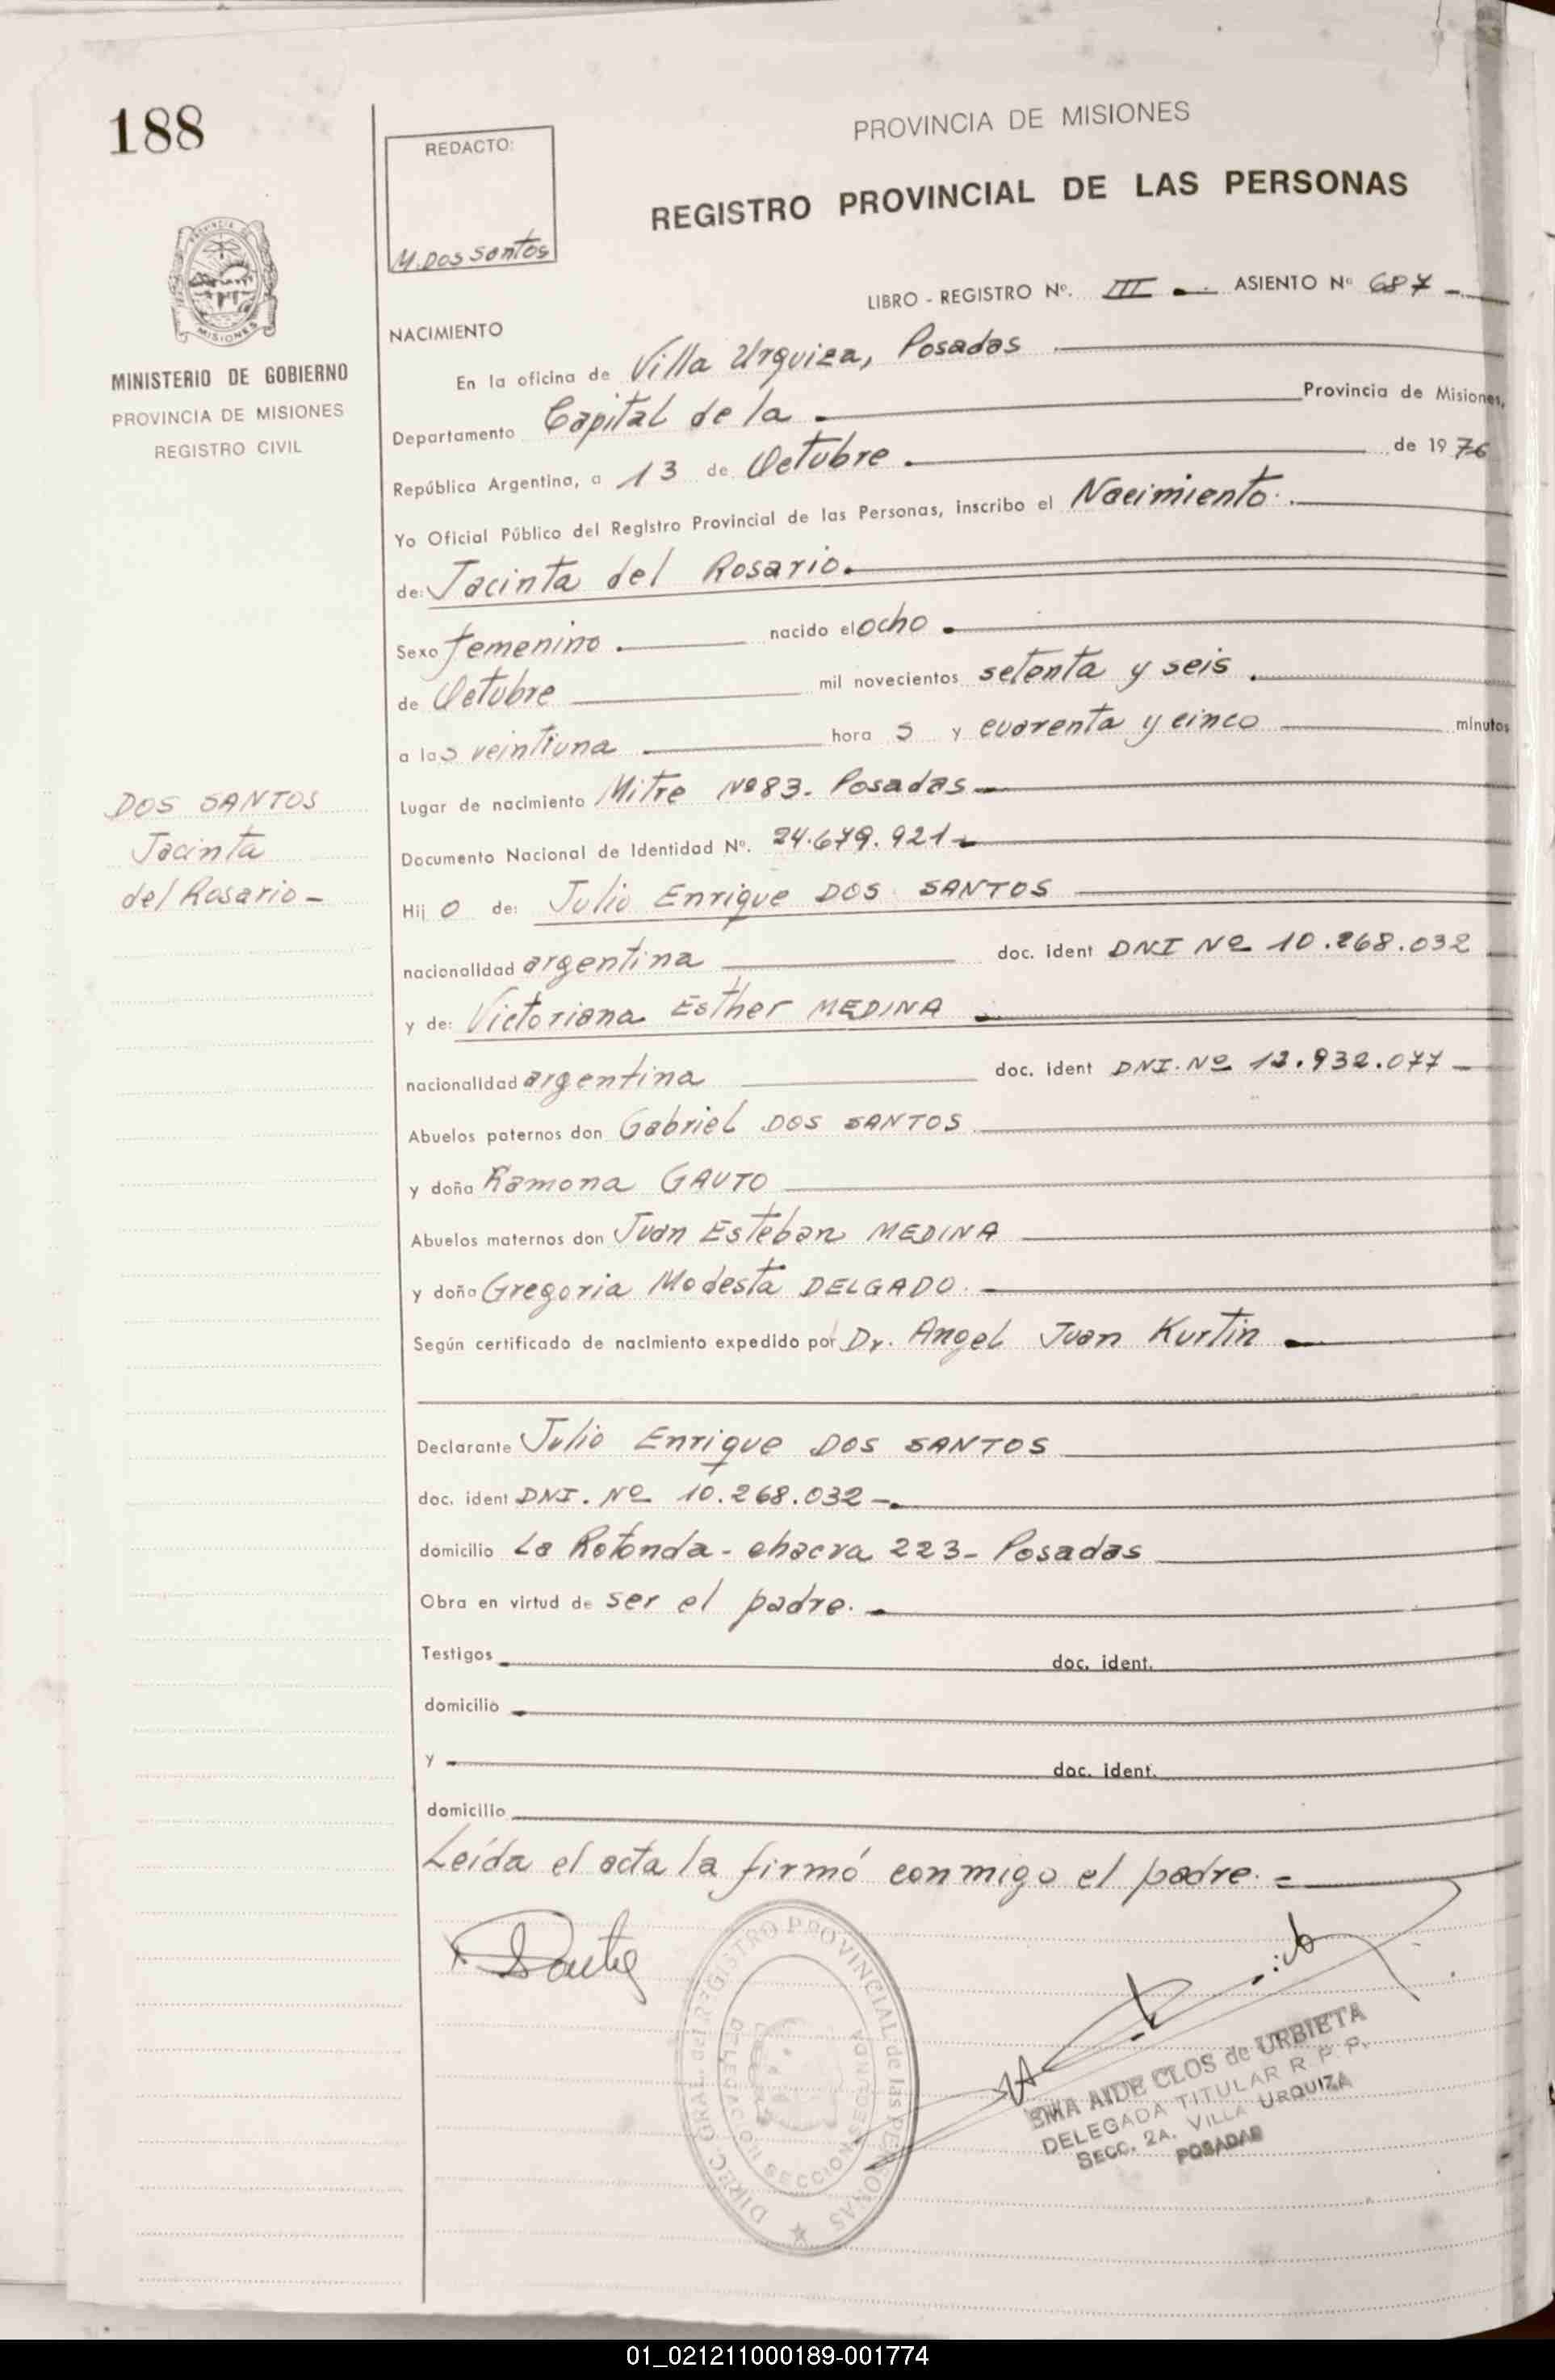 188
PROVINCIA DE MISIONES
REDACTO:
M. Dos Santos
REGISTRO PROVINCIAL DE LAS PERSONAS
LIBRO - REGISTRO Nº. III ASIENTO Nº 687 -
PROVINCIA DE MISIONES
MINISTERIO DE GOBIERNO
PROVINCIA DE MISIONES
REGISTRO CIVIL
NACIMIENTO
En la oficina de Villa Urquiza, Posadas
Departamento Capital de la Provincia de Misiones,
República Argentina, a 13 de Octubre de 1976
Yo Oficial Público del Registro Provincial de las Personas, inscribo el Nacimiento.
de: Jacinta del Rosario.
Sexo femenino. nacido el ocho.
de Octubre mil novecientos setenta y seis.
a las veintiuna hora s y cuarenta y cinco minutos
Lugar de nacimiento Mitre Nº 83. Posadas
Documento Nacional de Identidad Nº. 24.679.921
DOS SANTOS
Jacinta
del Rosario -
Hij o de: Julio Enrique DOS SANTOS
nacionalidad argentina doc. ident DNI Nº 10.268.032
y de: Victoriana Esther MEDINA
nacionalidad argentina doc. ident DNI. Nº 12.932.077
Abuelos paternos don Gabriel DOS SANTOS
y doña Ramona GAUTO
Abuelos maternos don Juan Esteban MEDINA
y doña Gregoria Modesta DELGADO.
Según certificado de nacimiento expedido por Dr. Angel Juan Kurtin
Declarante Julio Enrique DOS SANTOS
doc. ident DNI. Nº 10.268.032 -.
domicilio La Rotonda - chacra 223 - Posadas
Obra en virtud de ser el padre. -
Testigos doc. ident.
domicilio
y doc. ident.
domicilio
Leída el acta la firmó conmigo el padre. =
DIREC. GRAL. del REGISTRO PROVINCIAL de las PERSONAS
DELEGACION SECCION SEGUNDA
EMA AIDE CLOS de URBIETA
DELEGADA TITULAR R. P. P.
SECC. 2A. VILLA URQUIZA
POSADAS
01_021211000189-001774